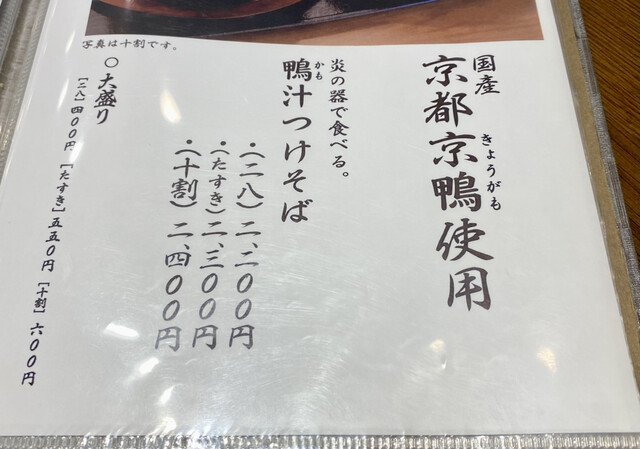 写真は十割です。
国産
京都京鴨使用
きょうがも
炎の器で食べる。
鴨汁つけそば
かも
・(二八)二、二〇〇円
・(たすき)二、三〇〇円
・(十割)二、四〇〇円
〇大盛り
[二八]四〇〇円 [たすき]五五〇円 [十割]六〇〇円